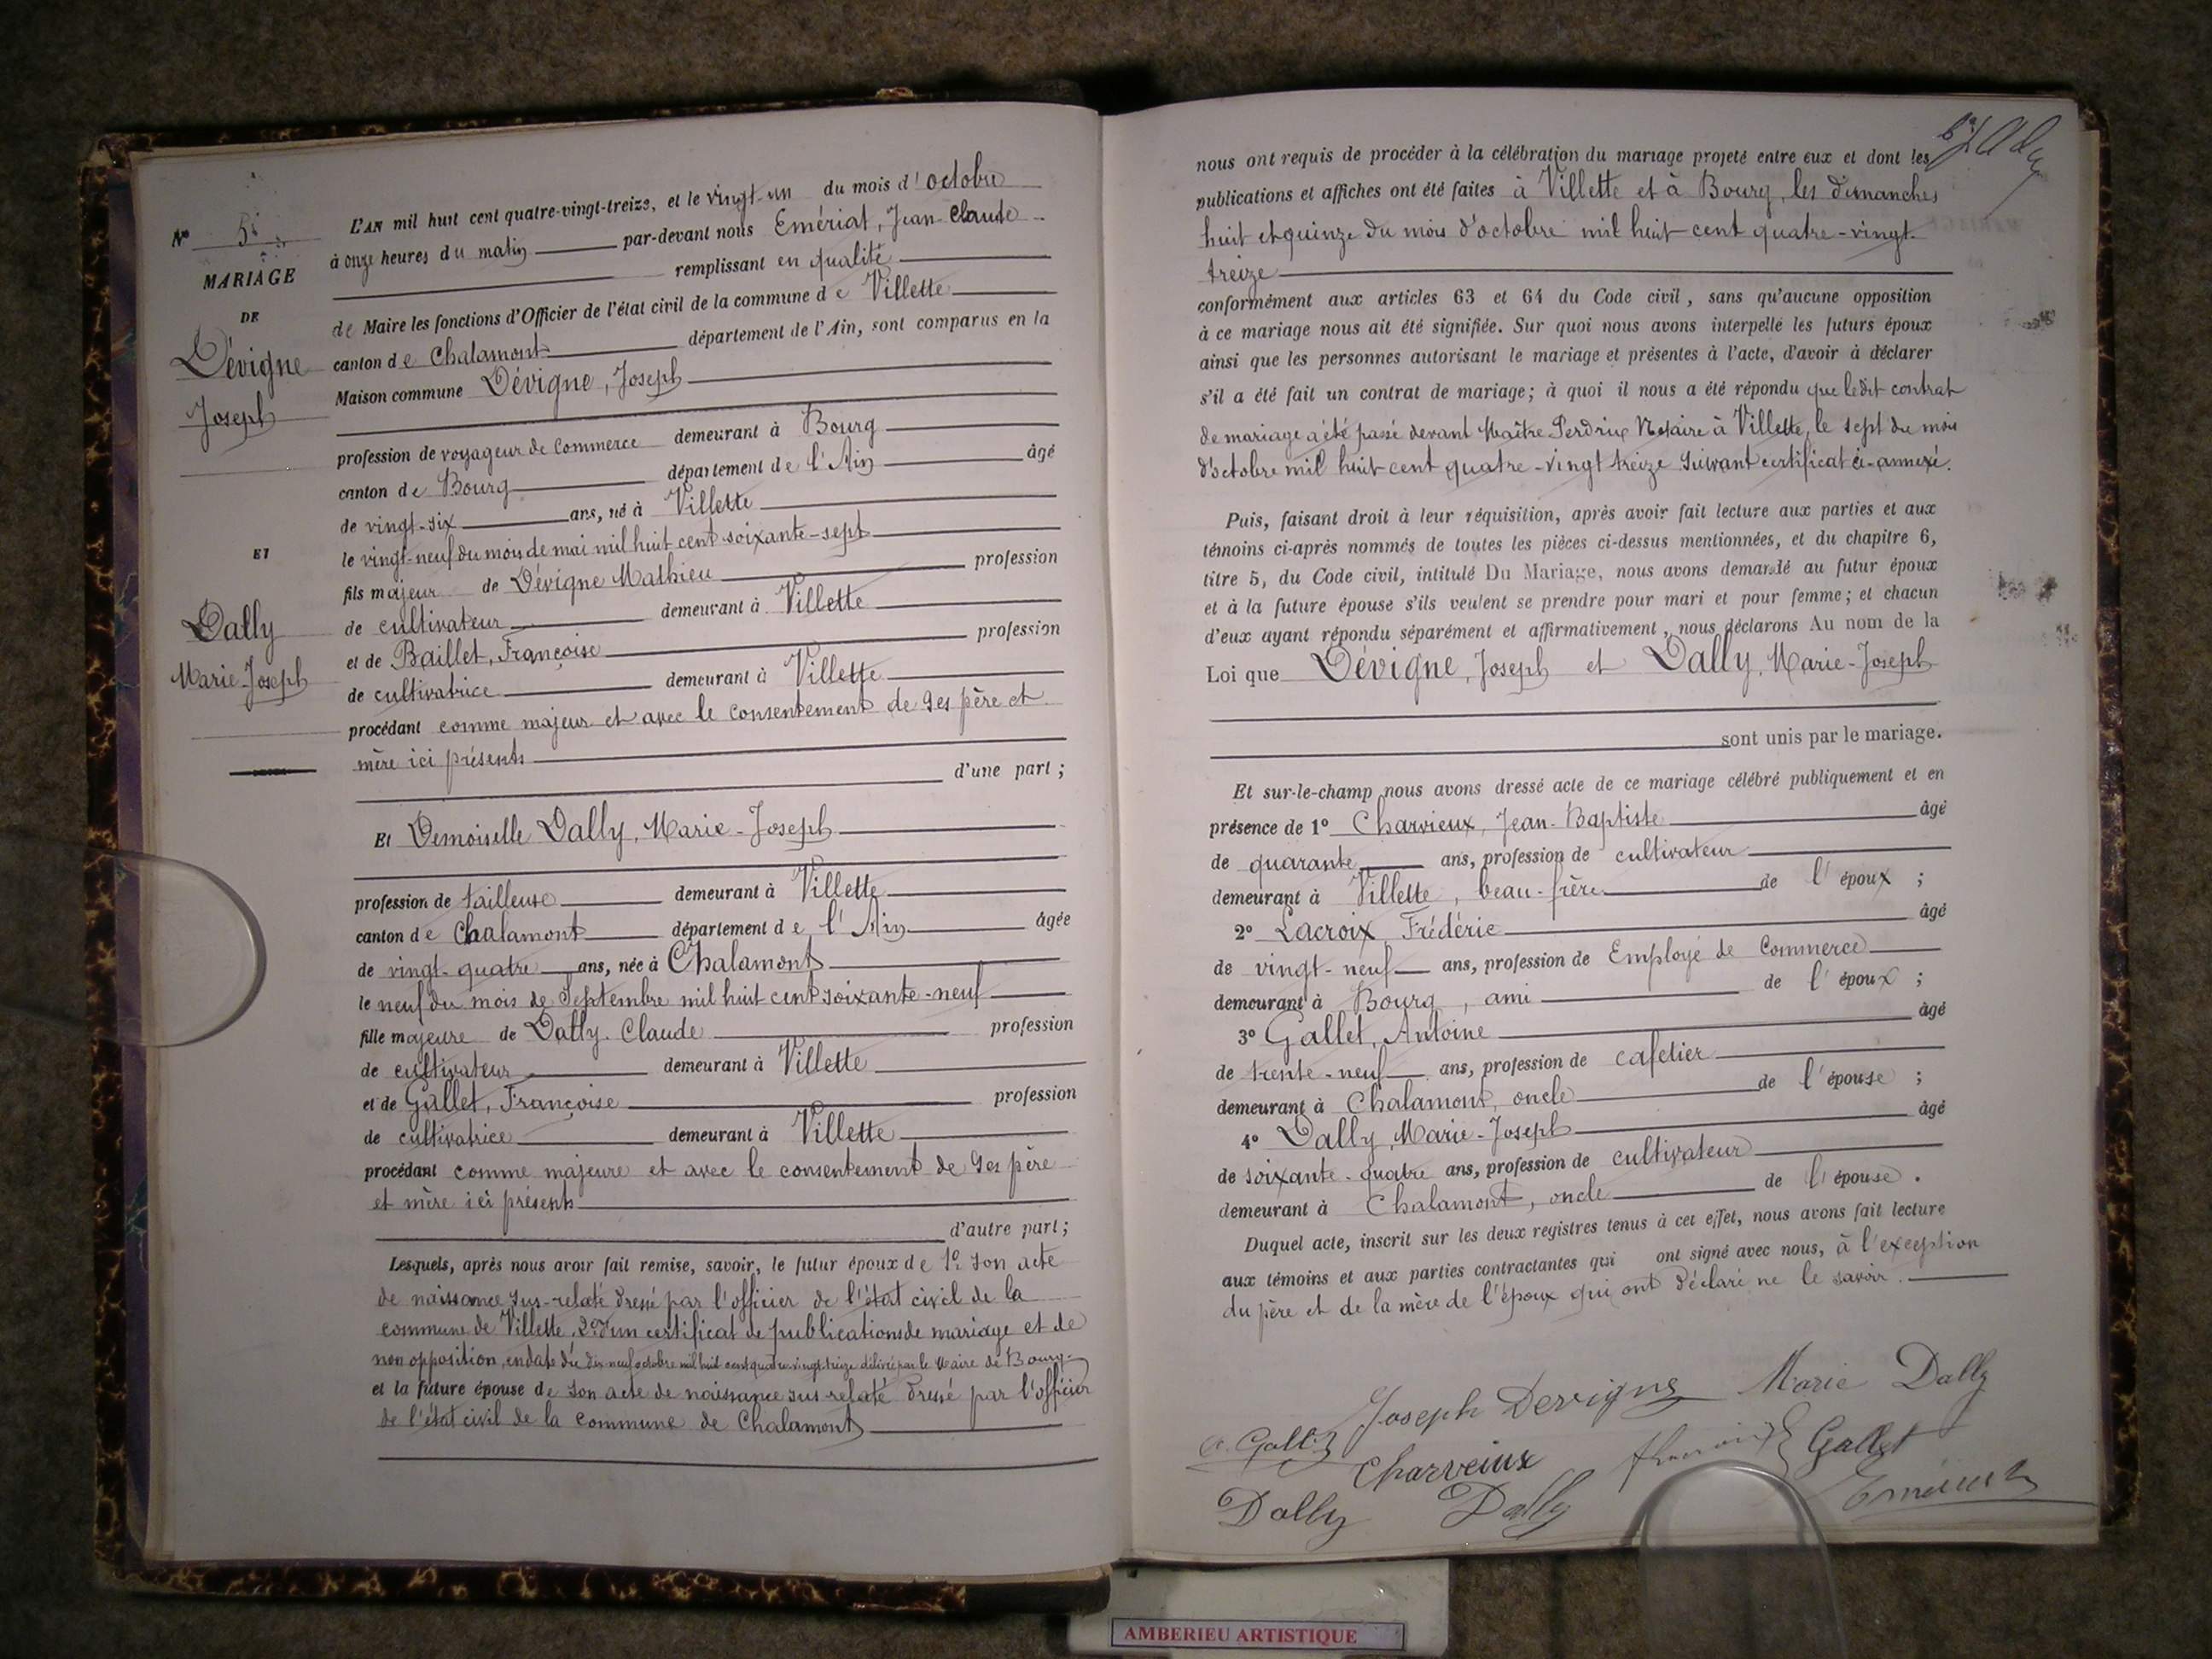 Nº 5
MARIAGE
DE
Dévigne
Joseph
ET
Dally
Marie-Joseph
L'AN mil huit cent quatre-vingt-treize, et le vingt-un du mois d'octobre
à onze heures du matin par-devant nous Emériat, Jean-Claude
remplissant en qualité
de Maire les fonctions d'Officier de l'état civil de la commune de Villette
canton de Chalamont département de l'Ain, sont comparus en la
Maison commune Dévigne, Joseph
profession de voyageur de Commerce demeurant à Bourg
canton de Bourg département de l'Ain âgé
de vingt-six ans, né à Villette
le vingt-neuf du mois de mai mil huit cent soixante-sept
fils majeur de Dévigne Mathieu profession
de cultivateur demeurant à Villette
et de Baillet, Françoise profession
de cultivatrice demeurant à Villette
procédant comme majeur et avec le consentement de ses père et
mère ici présents
d'une part ;
Et Demoiselle Dally, Marie-Joseph
profession de tailleuse demeurant à Villette
canton de Chalamont département de l'Ain âgée
de vingt-quatre ans, née à Chalamont
le neuf du mois de Septembre mil huit cent soixante-neuf
fille majeure de Dally Claude profession
de cultivateur demeurant à Villette
et de Gallet, Françoise profession
de cultivatrice demeurant à Villette
procédant comme majeure et avec le consentement de ses père
et mère ici présents
d'autre part ;
Lesquels, après nous avoir fait remise, savoir, le futur époux de 1º son acte
de naissance sus-relaté dressé par l'officier de l'état civil de la
commune de Villette, 2º d'un certificat de publications de mariage et de
non opposition, en date du dix neuf octobre mil huit cent quatre-vingt-treize délivré par le Maire de Bourg.
et la future épouse de son acte de naissance sus-relaté dressé par l'officier
de l'état civil de la commune de Chalamont
nous ont requis de procéder à la célébration du mariage projeté entre eux et dont les
publications et affiches ont été faites à Villette et à Bourg, les dimanches
huit et quinze du mois d'octobre mil huit cent quatre-vingt-
treize
conformément aux articles 63 et 64 du Code civil, sans qu'aucune opposition
à ce mariage nous ait été signifiée. Sur quoi nous avons interpellé les futurs époux
ainsi que les personnes autorisant le mariage et présentes à l'acte, d'avoir à déclarer
s'il a été fait un contrat de mariage; à quoi il nous a été répondu que ledit contrat
de mariage a été passé devant Maître Perdrix Notaire à Villette, le sept du mois
d'octobre mil huit cent quatre-vingt treize suivant certificat ci-annexé.
Puis, faisant droit à leur réquisition, après avoir fait lecture aux parties et aux
témoins ci-après nommés de toutes les pièces ci-dessus mentionnées, et du chapitre 6,
titre 5, du Code civil, intitulé Du Mariage, nous avons demandé au futur époux
et à la future épouse s'ils veulent se prendre pour mari et pour femme; et chacun
d'eux ayant répondu séparément et affirmativement, nous déclarons Au nom de la
Loi que Dévigne, Joseph et Dally, Marie-Joseph
sont unis par le mariage.
Et sur-le-champ nous avons dressé acte de ce mariage célébré publiquement et en
présence de 1º Charvieux, Jean-Baptiste âgé
de quarante ans, profession de cultivateur
demeurant à Villette, beau-frère de l'époux ;
2º Lacroix Frédéric âgé
de vingt-neuf ans, profession de Employé de Commerce
demeurant à Bourg, ami de l'époux ;
3º Gallet, Antoine âgé
de trente-neuf ans, profession de cafetier
demeurant à Chalamont, oncle de l'épouse ;
4º Dally, Marie-Joseph âgé
de soixante-quatre ans, profession de cultivateur
demeurant à Chalamont, oncle de l'épouse.
Duquel acte, inscrit sur les deux registres tenus à cet effet, nous avons fait lecture
aux témoins et aux parties contractantes qui ont signé avec nous, à l'exception
du père et de la mère de l'époux qui ont déclaré ne le savoir.
Joseph Devigne Marie Dally
Charveiux Gallet
Dally Dally
AMBERIEU ARTISTIQUE